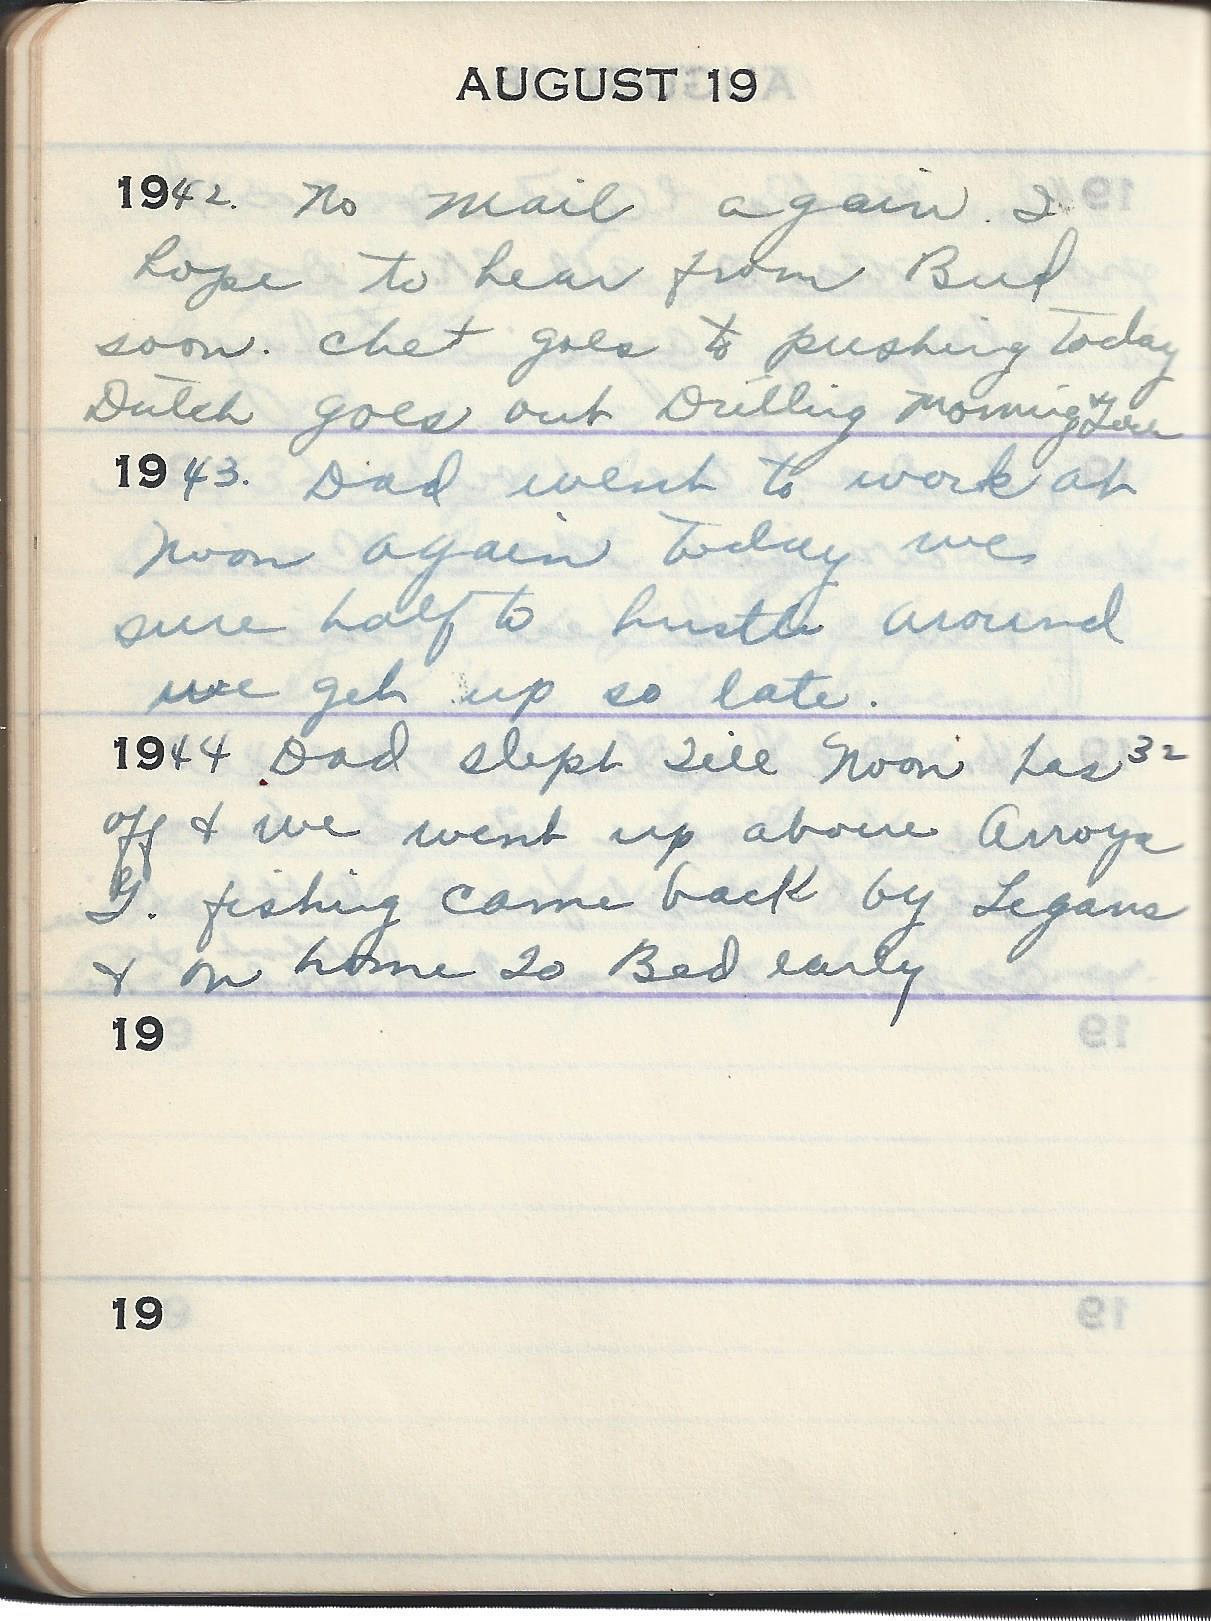 AUGUST 19
1942. No mail again. I
hope to hear from Bud
soon. Chet goes to pushing Today
Dutch goes out Drilling Morning
1943. Dad went to work at
Noon again Today we
sure half to hustle around
we get up so late.
1944 Dad slept Till Noon has 32
off & we went up above Arroya
G. fishing came back by Legans
& on home To Bed early
19
19